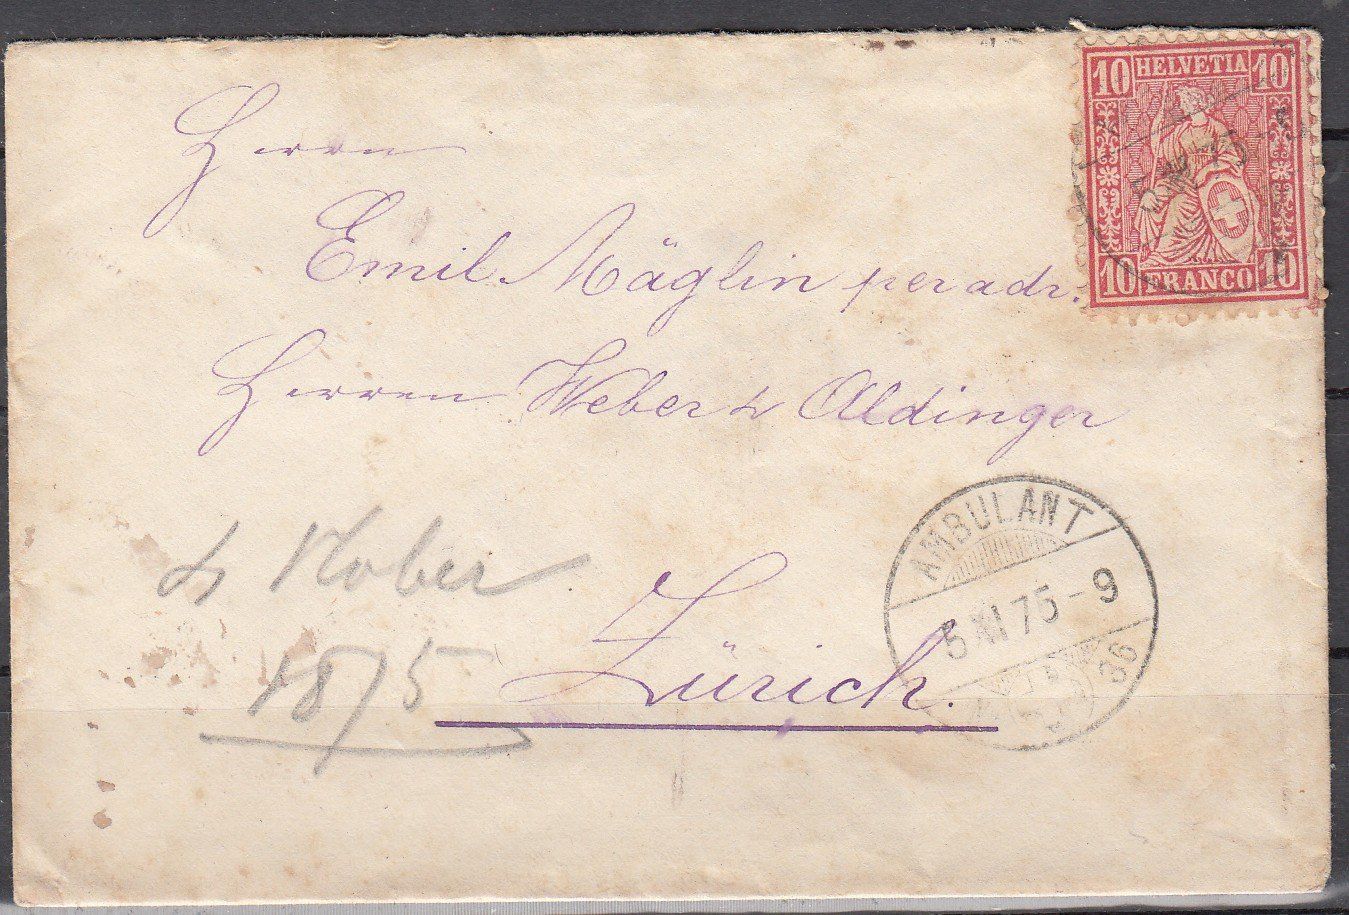 10 HELVETIA 10
10 FRANCO 10
Herrn
Emil Mäglin per adr.
Herren Weber & Aldinger
Zürich.
AMBULANT
5 XI 75 - 9
36
1875